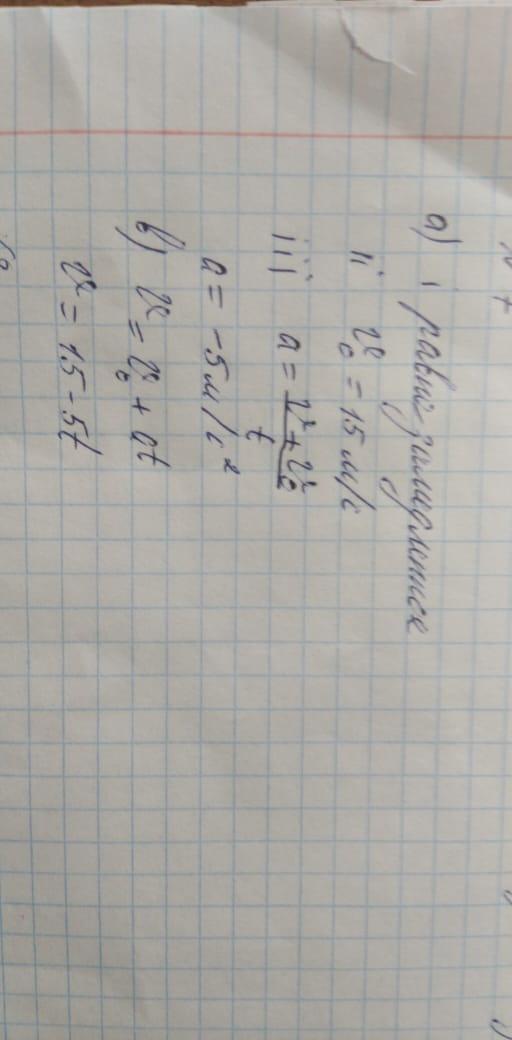 а) i равнозамедленное
ii v₀ = 15 м/с
iii a = v + v₀ / t
a = -5 м/с²
в) v = v₀ + at
v = 15 - 5t